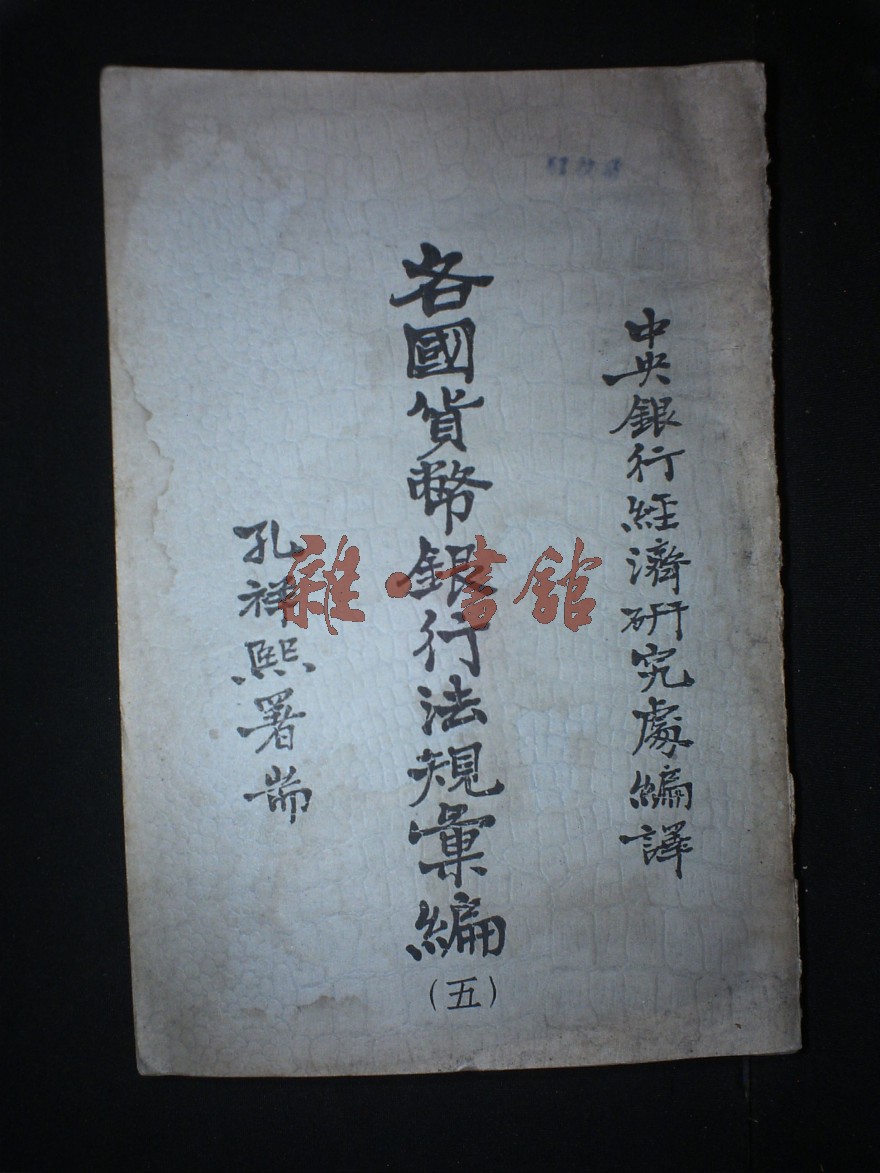 中央銀行經濟研究處編譯
各國貨幣銀行法規彙編
(五)
孔祥熙署耑
雜·書館